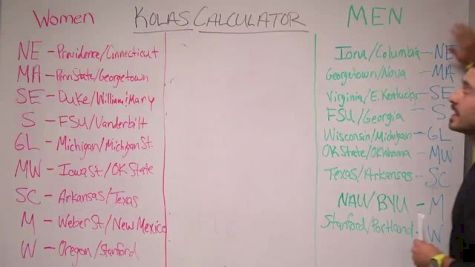 Women
KOLAS CALCULATOR
MEN
NE - Providence/Connecticut
MA - Penn State/Georgetown
SE - Duke/William&Mary
S - FSU/Vanderbilt
GL - Michigan/Michigan St.
MW - Iowa St/OK State
SC - Arkansas/Texas
M - Weber St/New Mexico
W - Oregon/Stanford
Iona/Columbia - NE
Georgetown/Nova - MA
Virginia/E. Kentucky - SE
FSU/Georgia - S
Wisconsin/Michigan - GL
OK State/Oklahoma - MW
Texas/Arkansas - SC
NAU/BYU - M
Stanford/Portland - W